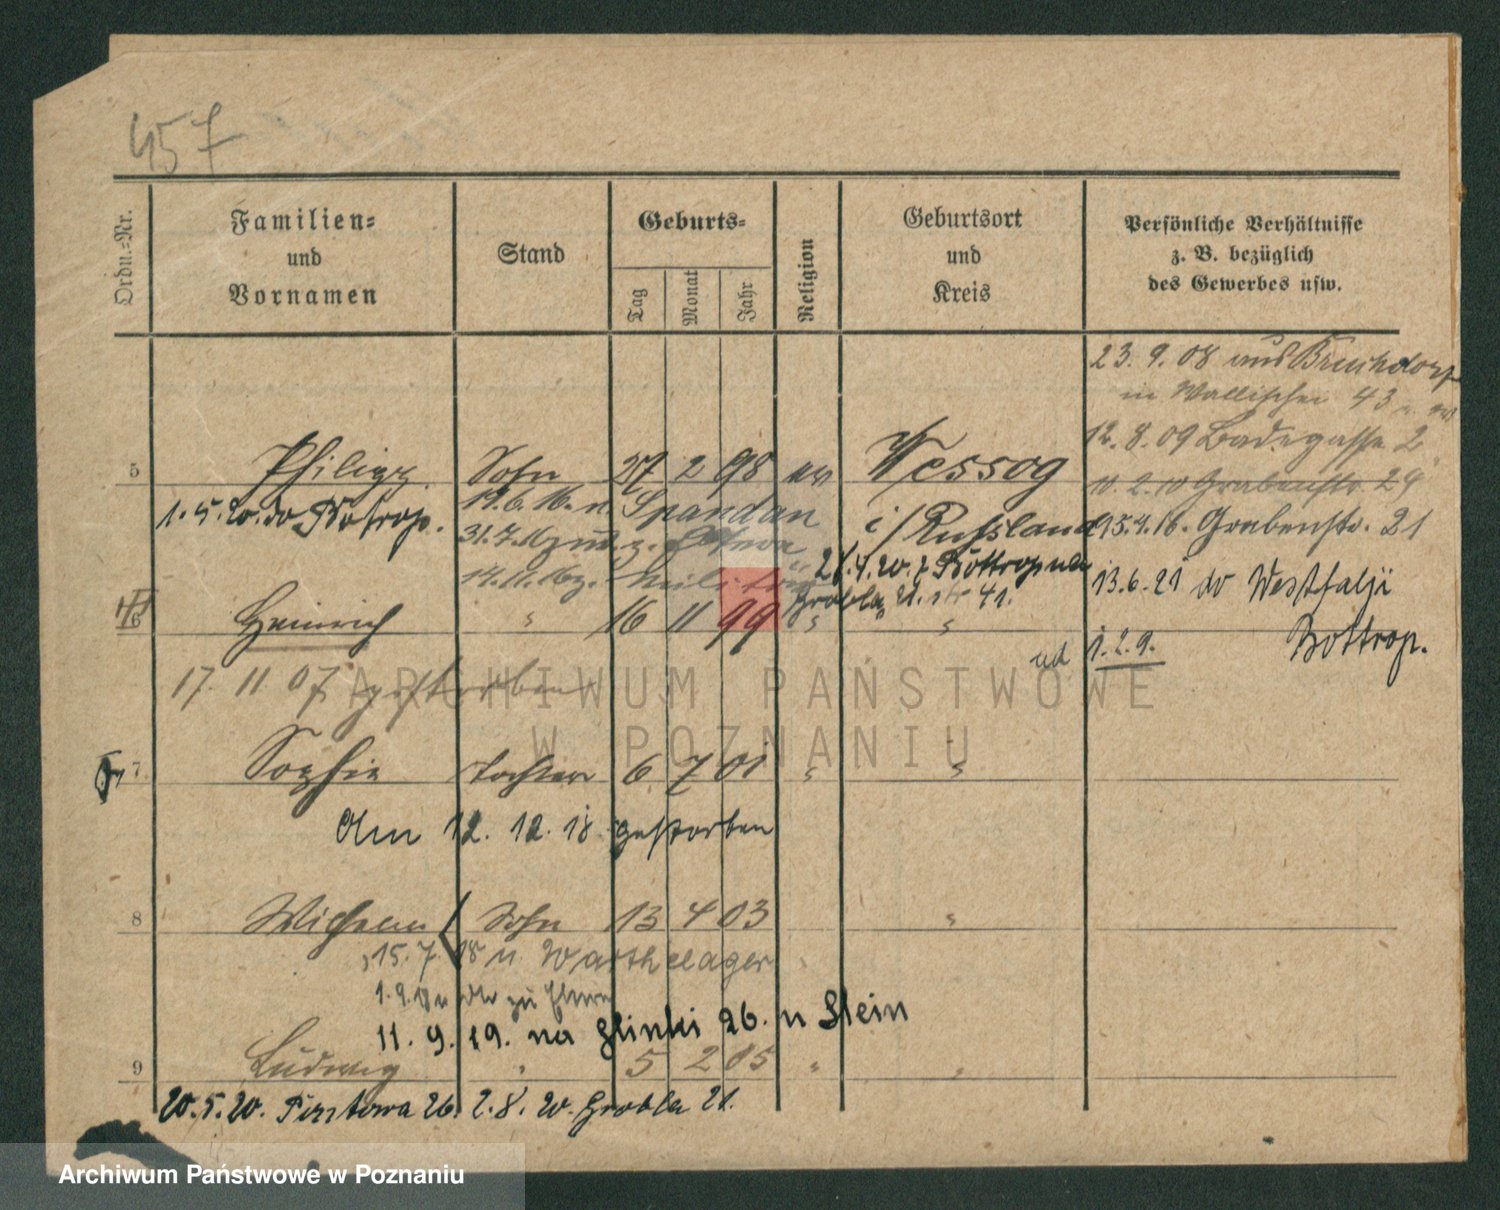 457
Ordn.=Nr.
Familien=
und
Vornamen
Stand
Geburts=
Tag
Monat
Jahr
Religion
Geburtsort
und
Kreis
Persönliche Verhältnisse
z. B. bezüglich
des Gewerbes usw.
23. 9. 08 aus
in Wallischei 43
12. 8. 09 Badegasse 2
5 Philipp Sohn 27 2 98 ev Wessog
11. 2. 10 Grabenstr. 29
1. 5. 20. do Botrop.
19.6.16. n. Spandau
i/Russland
15.4.16. Grabenstr. 21
31.7.16 zur
21.4.20. z Bottropu
14.11.16 z. Militär
Grobla 21. 41.
13.6.21 do Westfalji
6 Heinrich " 16 11 99 " "
ad 1.2.9. Bottrop.
17. 11 07 gestorben
ARCHIWUM PAŃSTWOWE
W POZNANIU
7 Sophie Tochter 6 7 01 " "
Am 12. 12. 18 gestorben
8 Wilhelm Sohn 13 4 03 "
15. 7. 18 n Warthelager
1.9.18 zu
11. 9. 19. na Glinki 26. u Stein
9 Ludwig " 5 2 05 " "
20. 5. 20. 26. 2. 8. 20. Grobla 21.
Archiwum Państwowe w Poznaniu